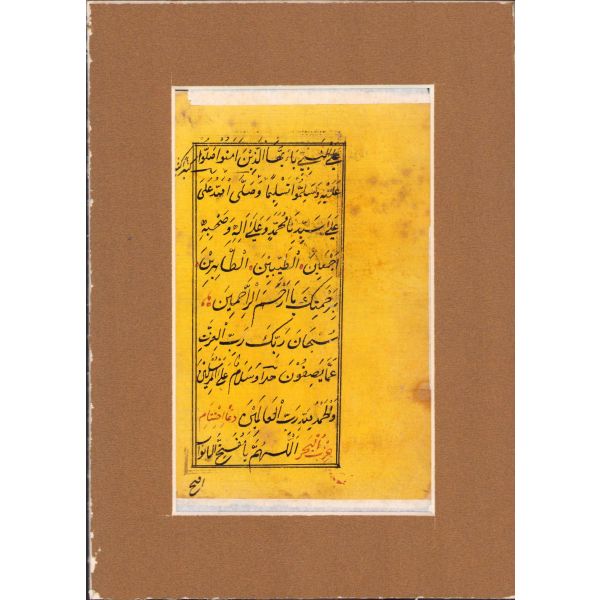 على النبي يا ايها الذين امنوا صلوا
عليه وسلموا تسليما وصلى الله على
على سيدنا محمد وعلى اله وصحبه
اجمعين الطيبين الطاهرين
برحمتك يا ارحم الراحمين
سبحان ربك رب العزت
عما يصفون وسلام على المرسلين
والحمد لله رب العالمين دعا اختتام
حزب البحر اللهم يا مفتح الابواب
افتح